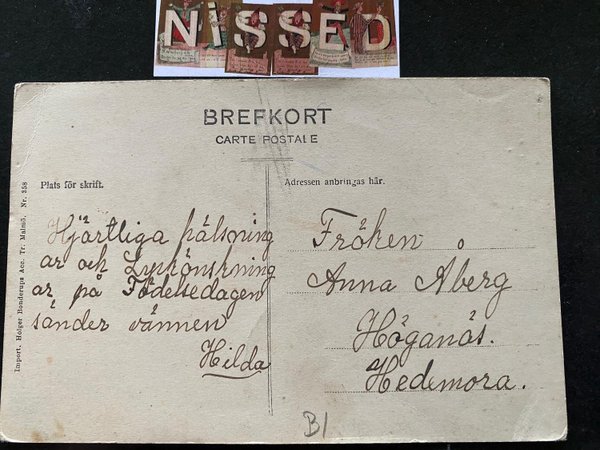 NISSED
BREFKORT
CARTE POSTALE
Plats för skrift.
Adressen anbringas här.
Hjärtliga hälsning
ar och Lyckönskning
ar på Födelsedagen
sänder vännen
Hilda
Fröken
Anna Åberg
Höganäs.
Hedemora.
Import. Holger Ronderups Acc. Tr. Malmö. Nr. 358
B1